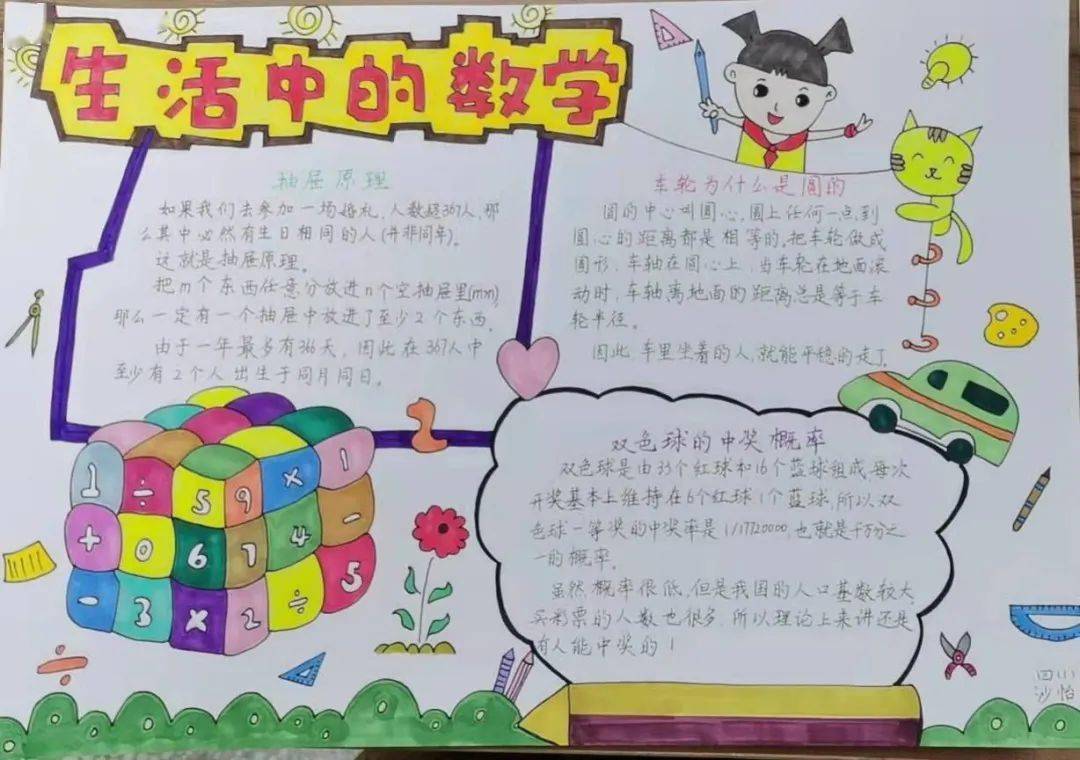 生活中的数学
抽屉原理
如果我们去参加一场婚礼,人数超367人,那
么其中必然有生日相同的人(并非同年)。
这就是抽屉原理。
把m个东西任意分放进n个空抽屉里(m>n)
那么一定有一个抽屉中放进了至少2个东西。
由于一年最多有366天,因此在367人中
至少有2个人出生于同月同日。
车轮为什么是圆的
圆的中心叫圆心,圆上任何一点到
圆心的距离都是相等的,把车轮做成
圆形,车轴在圆心上,当车轮在地面滚
动时,车轴离地面的距离总是等于车
轮半径。
因此,车里坐着的人,就能平稳的走了
双色球的中奖概率
双色球是由33个红球和16个蓝球组成,每次
开奖基本上维持在6个红球1个蓝球,所以双
色球一等奖的中奖率是1/17720000,也就是千万分之
一的概率。
虽然概率很低,但是我国的人口基数较大,
买彩票的人数也很多,所以理论上来讲还是
有人能中奖的!
1 ÷ 5 9 × 1
+ 0 6 7 4 -
- 3 × 2 ÷ 5
2
四(1)
沙怡